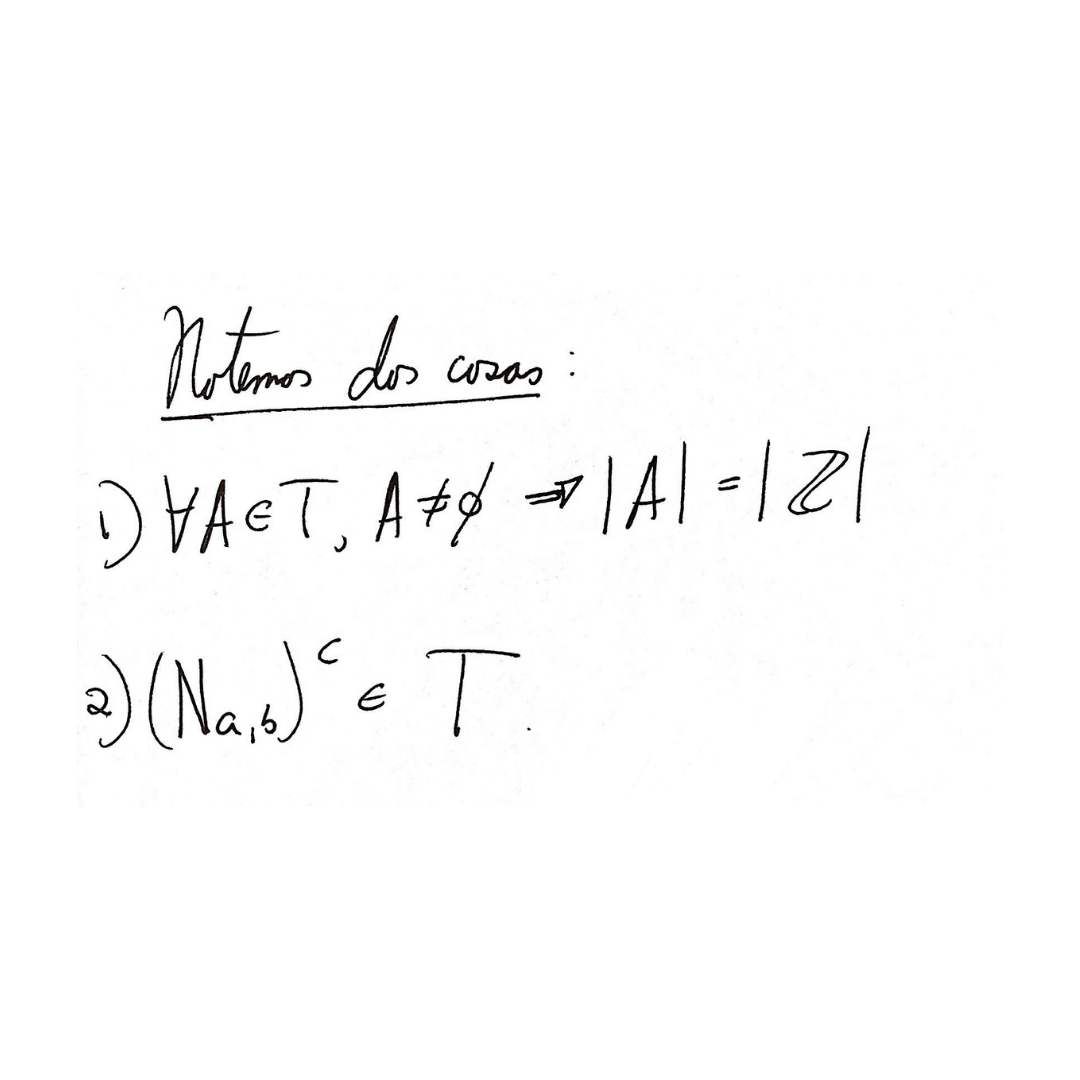 Notemos dos cosas:
1) ∀A∈T, A≠∅ ⇒ |A| = |ℤ|
2) (Na,b)ᶜ ∈ T.